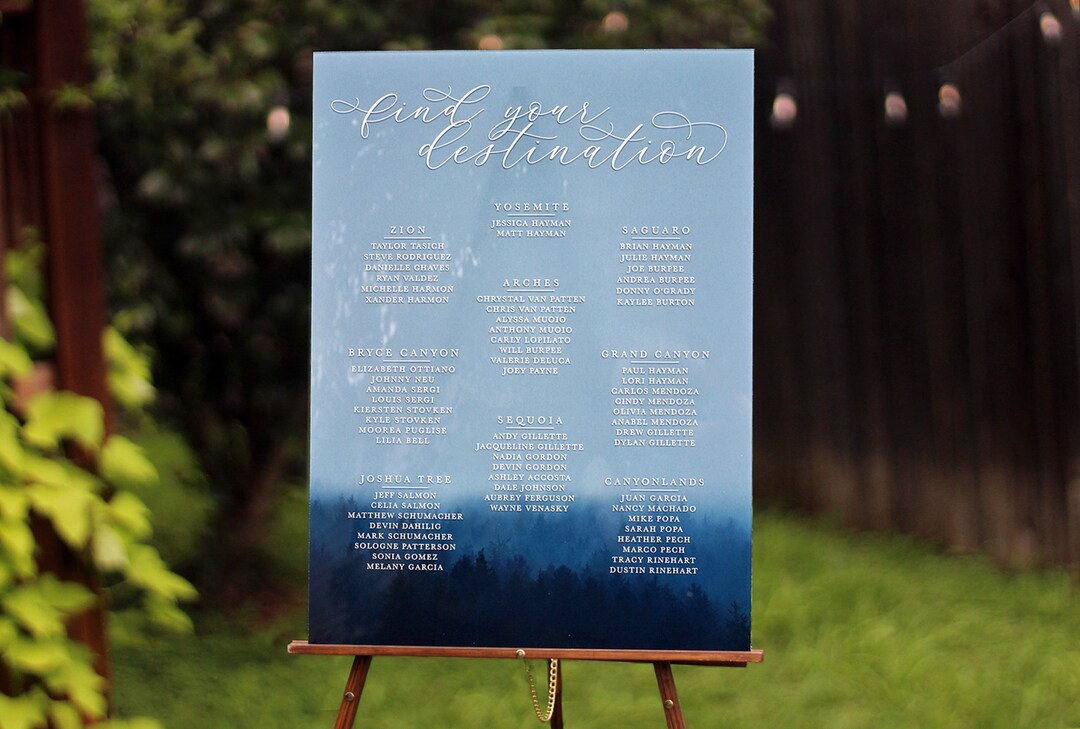 find your
destination
YOSEMITE
JESSICA HAYMAN
MATT HAYMAN
ZION
TAYLOR TASICH
STEVE RODRIGUEZ
DANIELLE CHAVES
RYAN VALDEZ
MICHELLE HARMON
XANDER HARMON
SAGUARO
BRIAN HAYMAN
JULIE HAYMAN
JOE BURPEE
ANDREA BURPEE
DONNY O'GRADY
KAYLEE BURTON
ARCHES
CHRYSTAL VAN PATTEN
CHRIS VAN PATTEN
ALYSSA MUOIO
ANTHONY MUOIO
CARLY LOPILATO
WILL BURPEE
VALERIE DELUCA
JOEY PAYNE
BRYCE CANYON
ELIZABETH OTTIANO
JOHNNY NEU
AMANDA SERGI
LOUIS SERGI
KIERSTEN STOVKEN
KYLE STOVKEN
MOOREA PUGLISE
LILIA BELL
GRAND CANYON
PAUL HAYMAN
LORI HAYMAN
CARLOS MENDOZA
CINDY MENDOZA
OLIVIA MENDOZA
ANABEL MENDOZA
DREW GILLETTE
DYLAN GILLETTE
SEQUOIA
ANDY GILLETTE
JACQUELINE GILLETTE
NADIA GORDON
DEVIN GORDON
ASHLEY ACCOSTA
DALE JOHNSON
AUBREY FERGUSON
WAYNE VENASKY
JOSHUA TREE
JEFF SALMON
CELIA SALMON
MATTHEW SCHUMACHER
DEVIN DAHILIG
MARK SCHUMACHER
SOLOGNE PATTERSON
SONIA GOMEZ
MELANY GARCIA
CANYONLANDS
JUAN GARCIA
NANCY MACHADO
MIKE POPA
SARAH POPA
HEATHER PECH
MARCO PECH
TRACY RINEHART
DUSTIN RINEHART